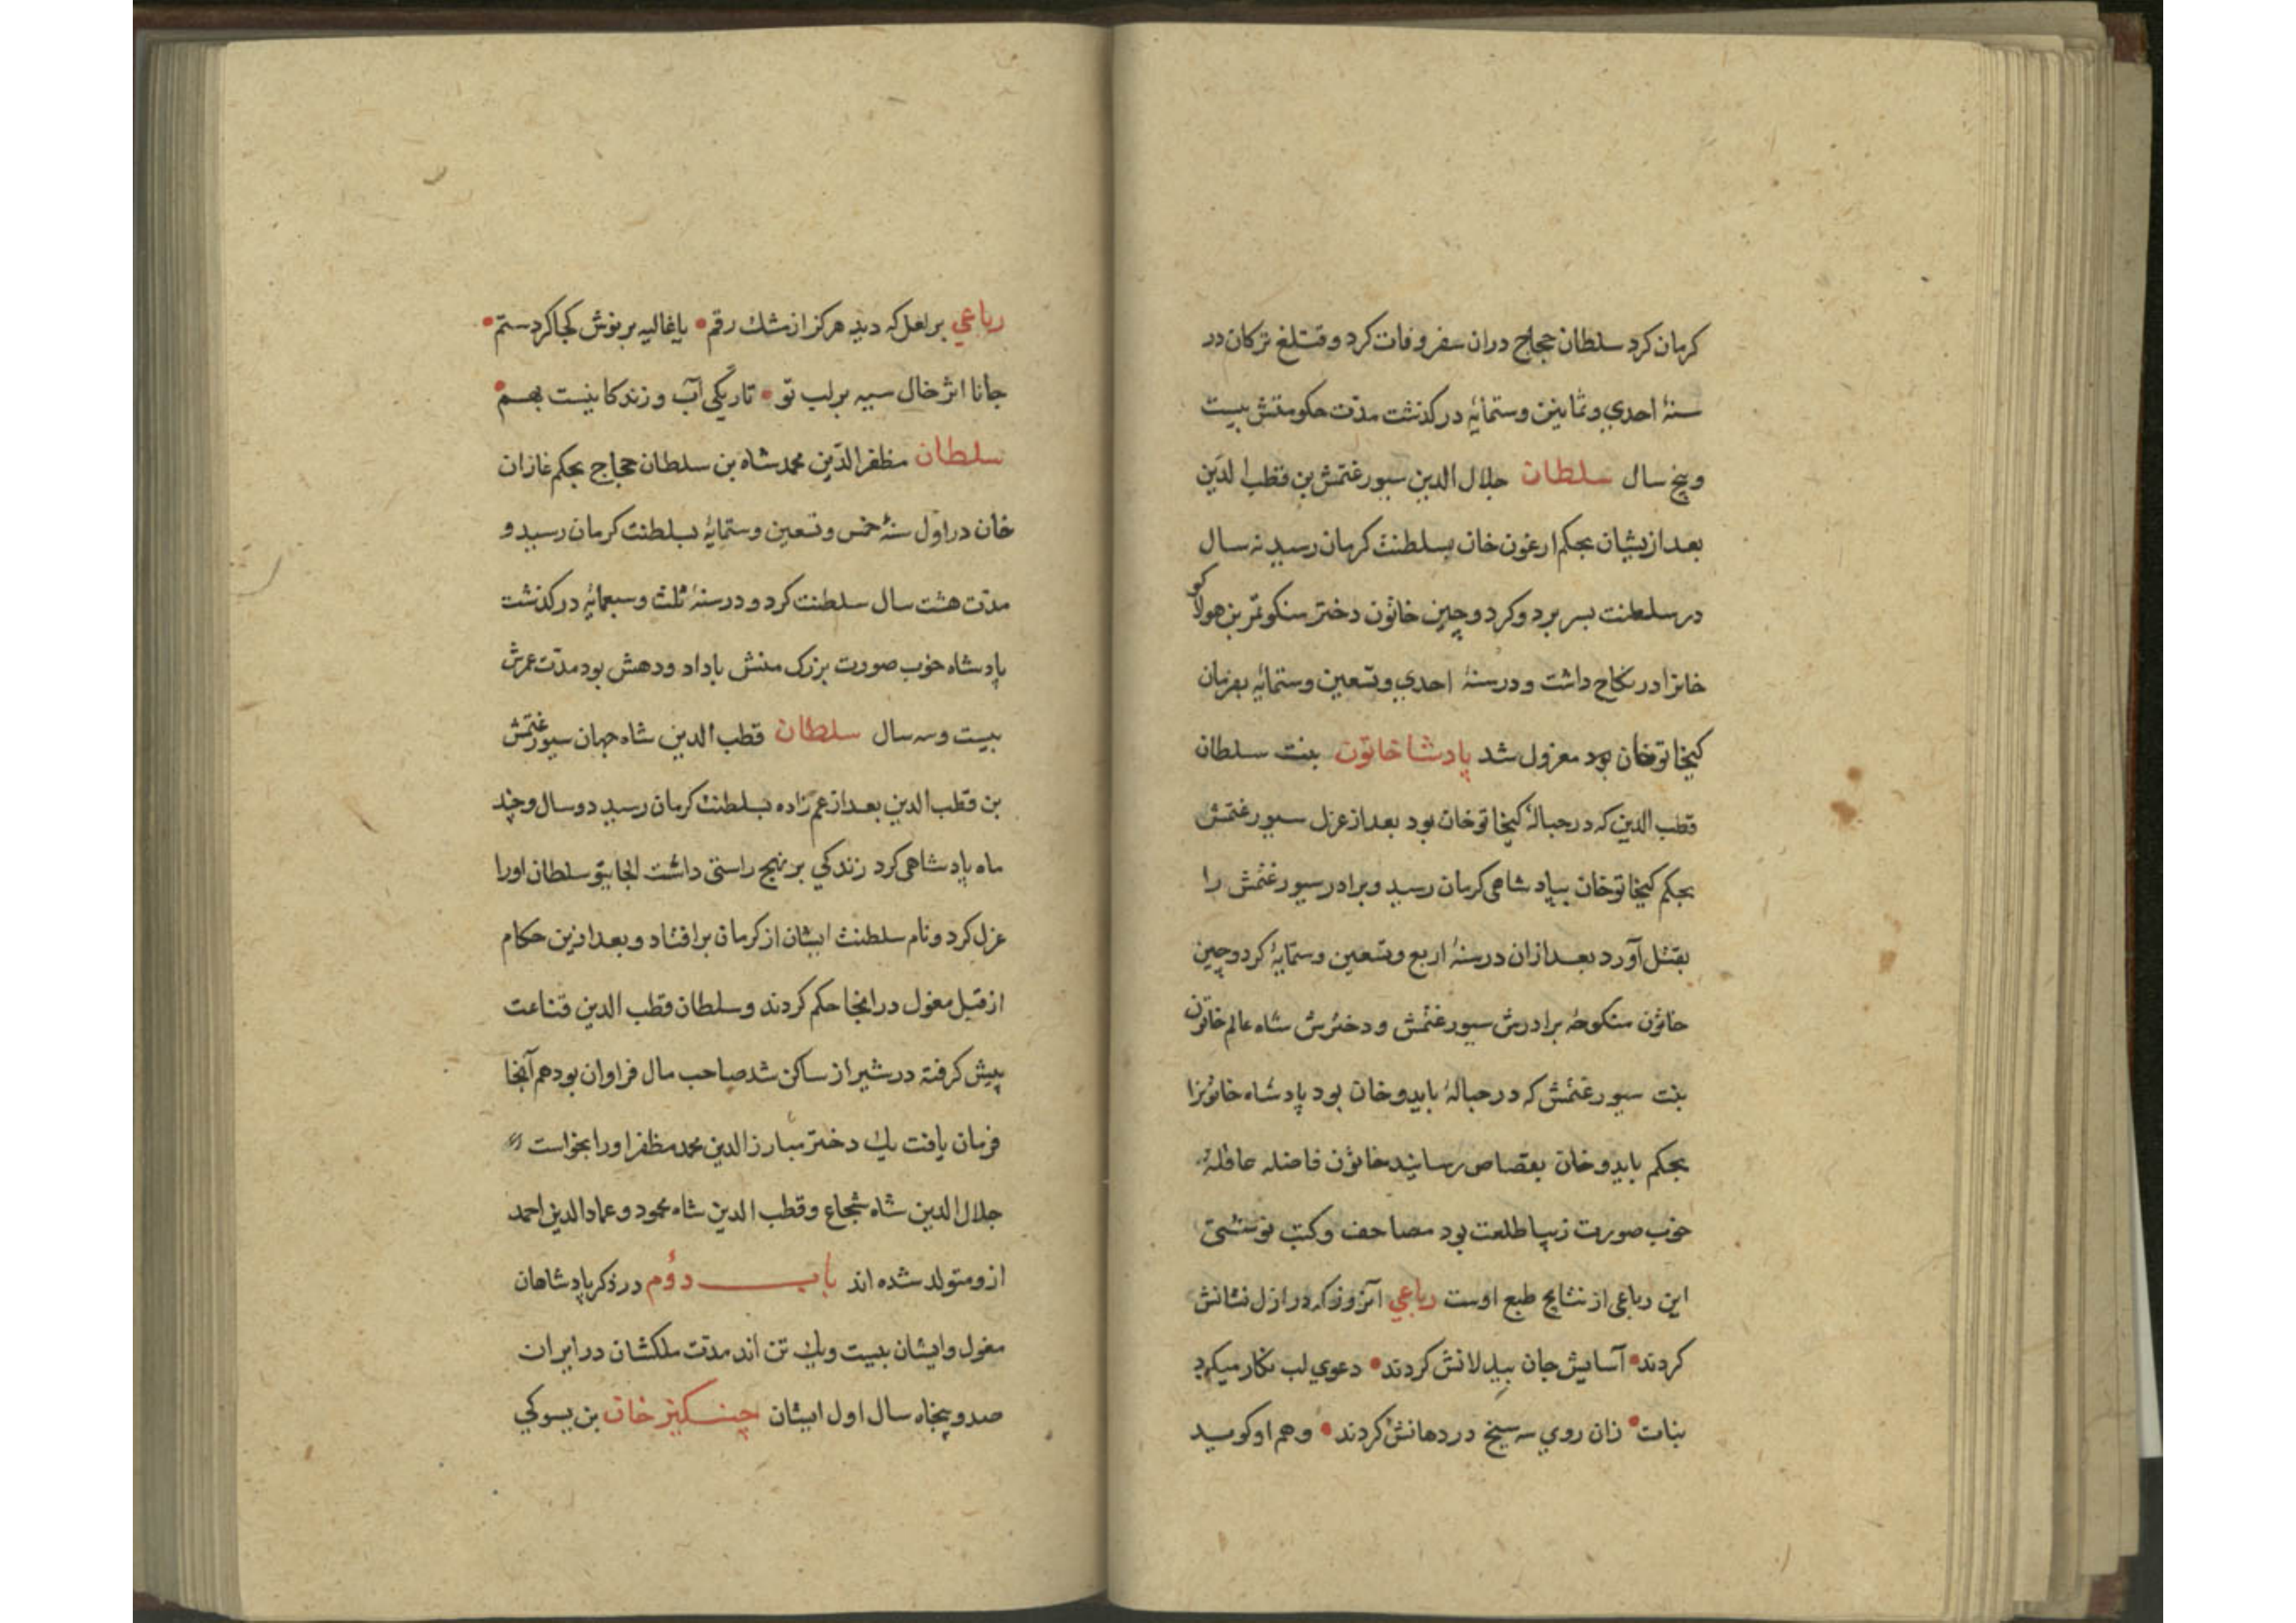 کرمان کرد سلطان حجاج دران سفر وفات کرد و قتلغ ترکان در
سنهٔ احدي و ثمانین و ستمایهٔ در کذشت مدّت حکومتش بیست
و پنج سال سلطان جلال الدین سیورغتمش بن قطب الدّین
بعد ازیشان بحکم ارغون خان بسلطنت کرمان رسید نه سال
در سلطنت بسر برد و کردوچین خاتون دختر منکوتمر بن هولاکو
خانرا در نکاح داشت و در سنهٔ احدي و تسعین و ستمایهٔ بفرمان
کیخاتو خان بود معزول شد پادشا خاتون بنت سلطان
قطب الدین که در حبالهٔ کیخاتو خان بود بعد از عزل سیورغتمش
بحکم کیخاتو خان بپادشاهی کرمان رسید و برادر سیورغتمش را
بقتل آورد بعد ازان در سنهٔ اربع و تسعین و ستمایهٔ کردوچین
خاتون منکوحهٔ برادرش سیورغتمش و دخترش شاه عالم خاتون
بنت سیورغتمش که در حبالهٔ بایدو خان بود پادشاه خاتونرا
بحکم بایدو خان بقصاص رسانید خاتون فاضله عاقلهٔ
خوب صورت زیبا طلعت بود مصاحف و کتب نوشتی
این رباعی از نتایج طبع اوست رباعي آنروز که در ازل نشانش
کردند • آسایش جان بیدلانش کردند • دعوي لب نکار میکرد
نبات • زان روي سه سیخ در دهانش کردند • و هم او کومید
رباعي بر لعل که دید هرکز از مشك رقم • یا غالیه بر نوش کجا کرد ستم •
جانا اثر خال سیه بر لب تو • تاریکی آب و زندکانیست بهم •
سلطان مظفر الدّین محمد شاه بن سلطان حجاج بحکم غازان
خان در اوّل سنهٔ خمس و تسعین و ستمایهٔ بسلطنت کرمان رسید و
مدّت هشت سال سلطنت کرد و در سنهٔ ثلث و سبعمایهٔ در کذشت
پادشاه خوب صورت بزرک منش باداد و دهش بود مدّت عمرش
بیست و سه سال سلطان قطب الدین شاه جهان سیورغتمش
بن قطب الدین بعد از عم زاده بسلطنت کرمان رسید دو سال و چند
ماه پادشاهی کرد زندکي بر نهج راستی داشت الجایتو سلطان اورا
عزل کرد و نام سلطنت ایشان از کرمان برافتاد و بعد ازین حکام
از قبل مغول در انجا حکم کردند و سلطان قطب الدین قناعت
پیش کرفته در شیراز ساکن شد صاحب مال فراوان بود هم آنجا
فرمان یافت یك دختر مبارز الدین محمد مظفر اورا بخواست
جلال الدین شاه شجاع و قطب الدین شاه محمود و عماد الدین احمد
ازو متولد شده اند باب دوّم در ذکر پادشاهان
مغول و ایشان بیست و یك تن اند مدّت ملکشان در ایران
صد و پنجاه سال اول ایشان چنکیز خان بن یسوکي